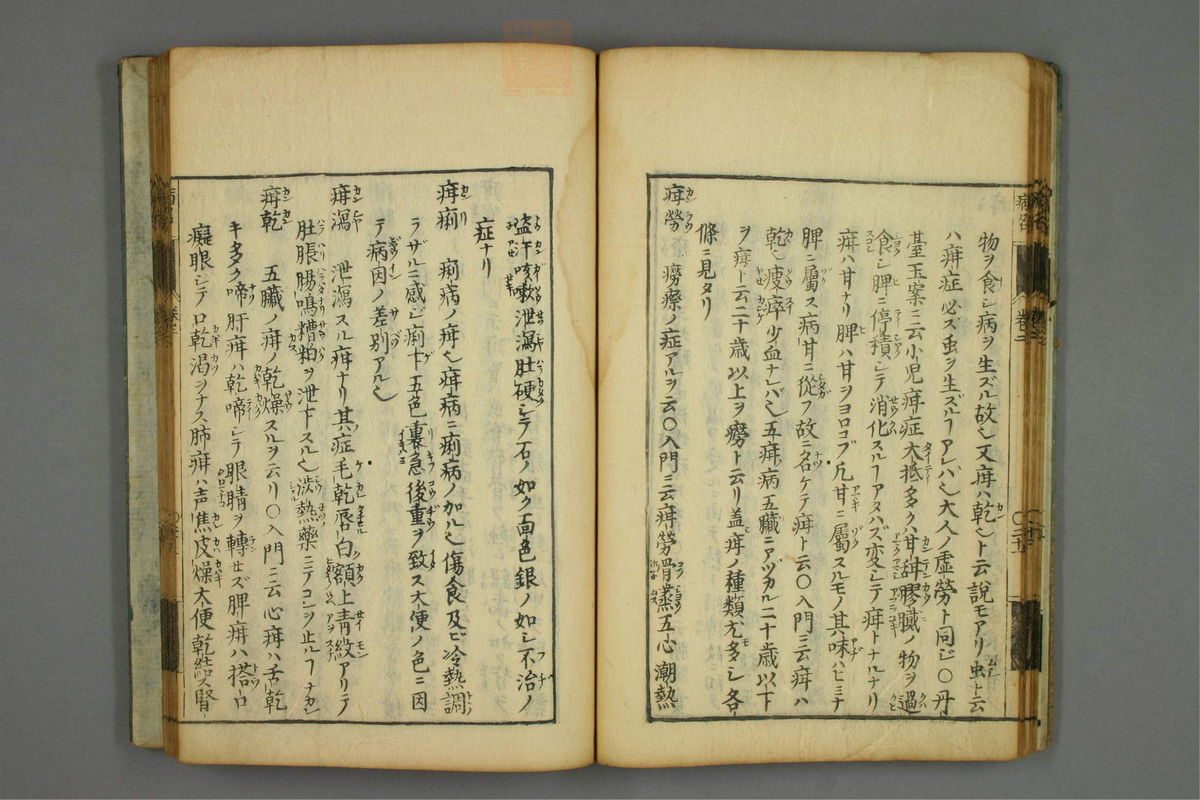 物ヲ食シ病ヲ生ズル故也又疳ハ乾也ト云説モアリ虫ト云
ハ疳症必ス虫ヲ生ズルヿアレバ也大人ノ虚勞ト同ジ〇丹
臺玉案ニ云小児疳症大抵多クハ甘甜膠膩ノ物ヲ過
食シ脾ニ停積シテ消化スルヿアタハズ変シテ疳トナルナリ
疳ハ甘ナリ脾ハ甘ヲヨロコブ凡甘ニ屬スルモノ其味ハヒミナ
脾ニ屬ス病甘ニ從フ故ニ名ケテ疳ト云〇入門ニ云疳ハ
乾也瘦瘁少血ナレバ也五疳病五臓ニアヅカル二十歳以下
ヲ疳ト云二十歳以上ヲ癆ト云リ盖疳ノ種類尤多シ各
條ニ見タリ
疳勞 癆瘵ノ症アルヲ云〇入門ニ云疳勞骨蒸五心潮熱
盗汗咳嗽泄瀉肚硬シテ石ノ如ク面色銀ノ如シ不治ノ
症ナリ
疳痢 痢病ノ疳也疳病ニ痢病ノ加ル也傷食及ビ冷熱調
ラザルニ感ジ痢下五色裏急後重ヲ致ス大便ノ色ニ因
テ病因ノ差別アル也
疳瀉 泄瀉スル疳ナリ其症毛乾唇白額上青紋アリテ
肚脹腸鳴糟粕ヲ泄下スル也渋熱藥ニテコレヲ止ルヿナカレ
疳乾 五臓ノ疳ノ乾燥スルヲ云リ〇入門ニ云心疳ハ舌乾
キ多ク啼肝疳ハ乾啼シテ眼睛ヲ轉セズ脾疳ハ搭口
癡眼シテ口乾渇ヲナス肺疳ハ声焦皮燥大便乾結ス腎